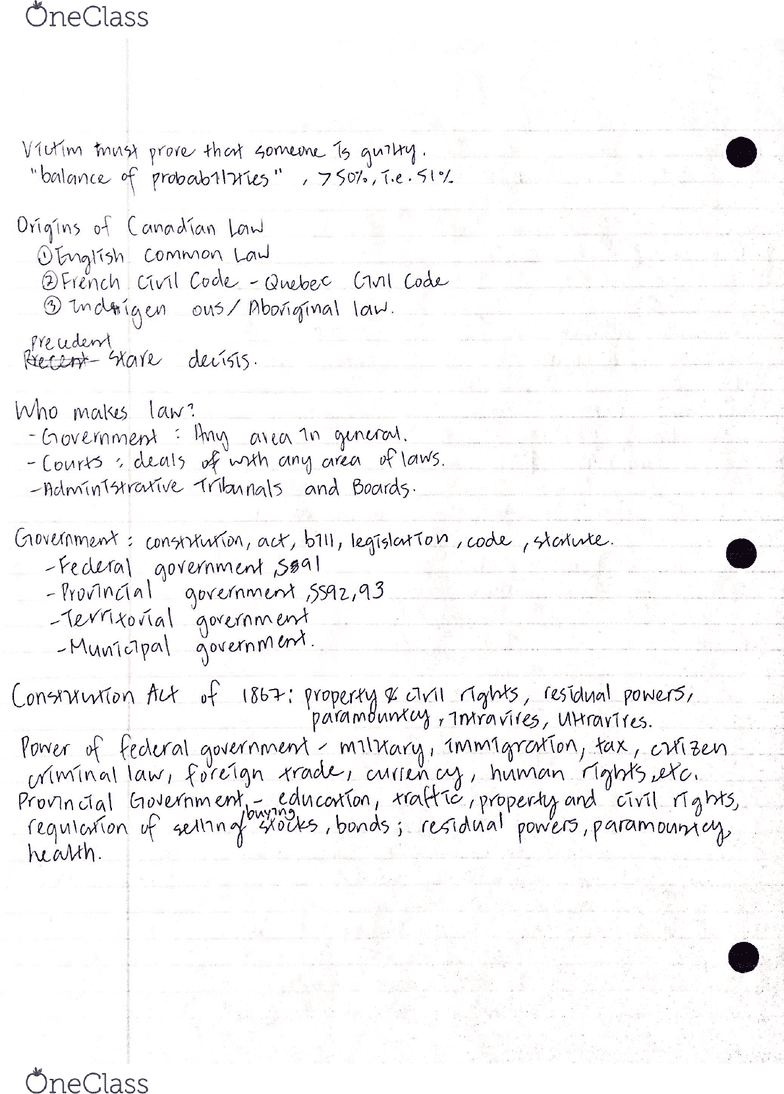 OneClass
Victim must prove that someone is guilty.
"balance of probabilities" , >50%, i.e. 51%
Origins of Canadian Law
① English common Law
② French Civil Code - Quebec Civil Code
③ Indigen ous/ Aboriginal law.
Precedent
Precent - stare decisis.
Who makes law?
- Government : Any area in general.
- Courts : deals of with any area of laws.
- Administrative Tribunals and Boards.
Government : constitution, act, bill, legislation, code, statute.
- Federal government, SS91
- Provincial government, SS92, 93
- Territorial government
- Municipal government.
Constitution Act of 1867: property & civil rights, residual powers,
paramountcy, intravires, ultravires.
Power of federal government - military, immigration, tax, citizen
criminal law, foreign trade, currency, human rights, etc.
Provincial Government, - education, traffic, property and civil rights,
buying
regulation of selling/ stocks, bonds; residual powers, paramountcy,
health.
OneClass